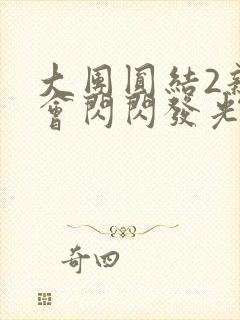 大團圓結2新
會閃閃發光
奇四